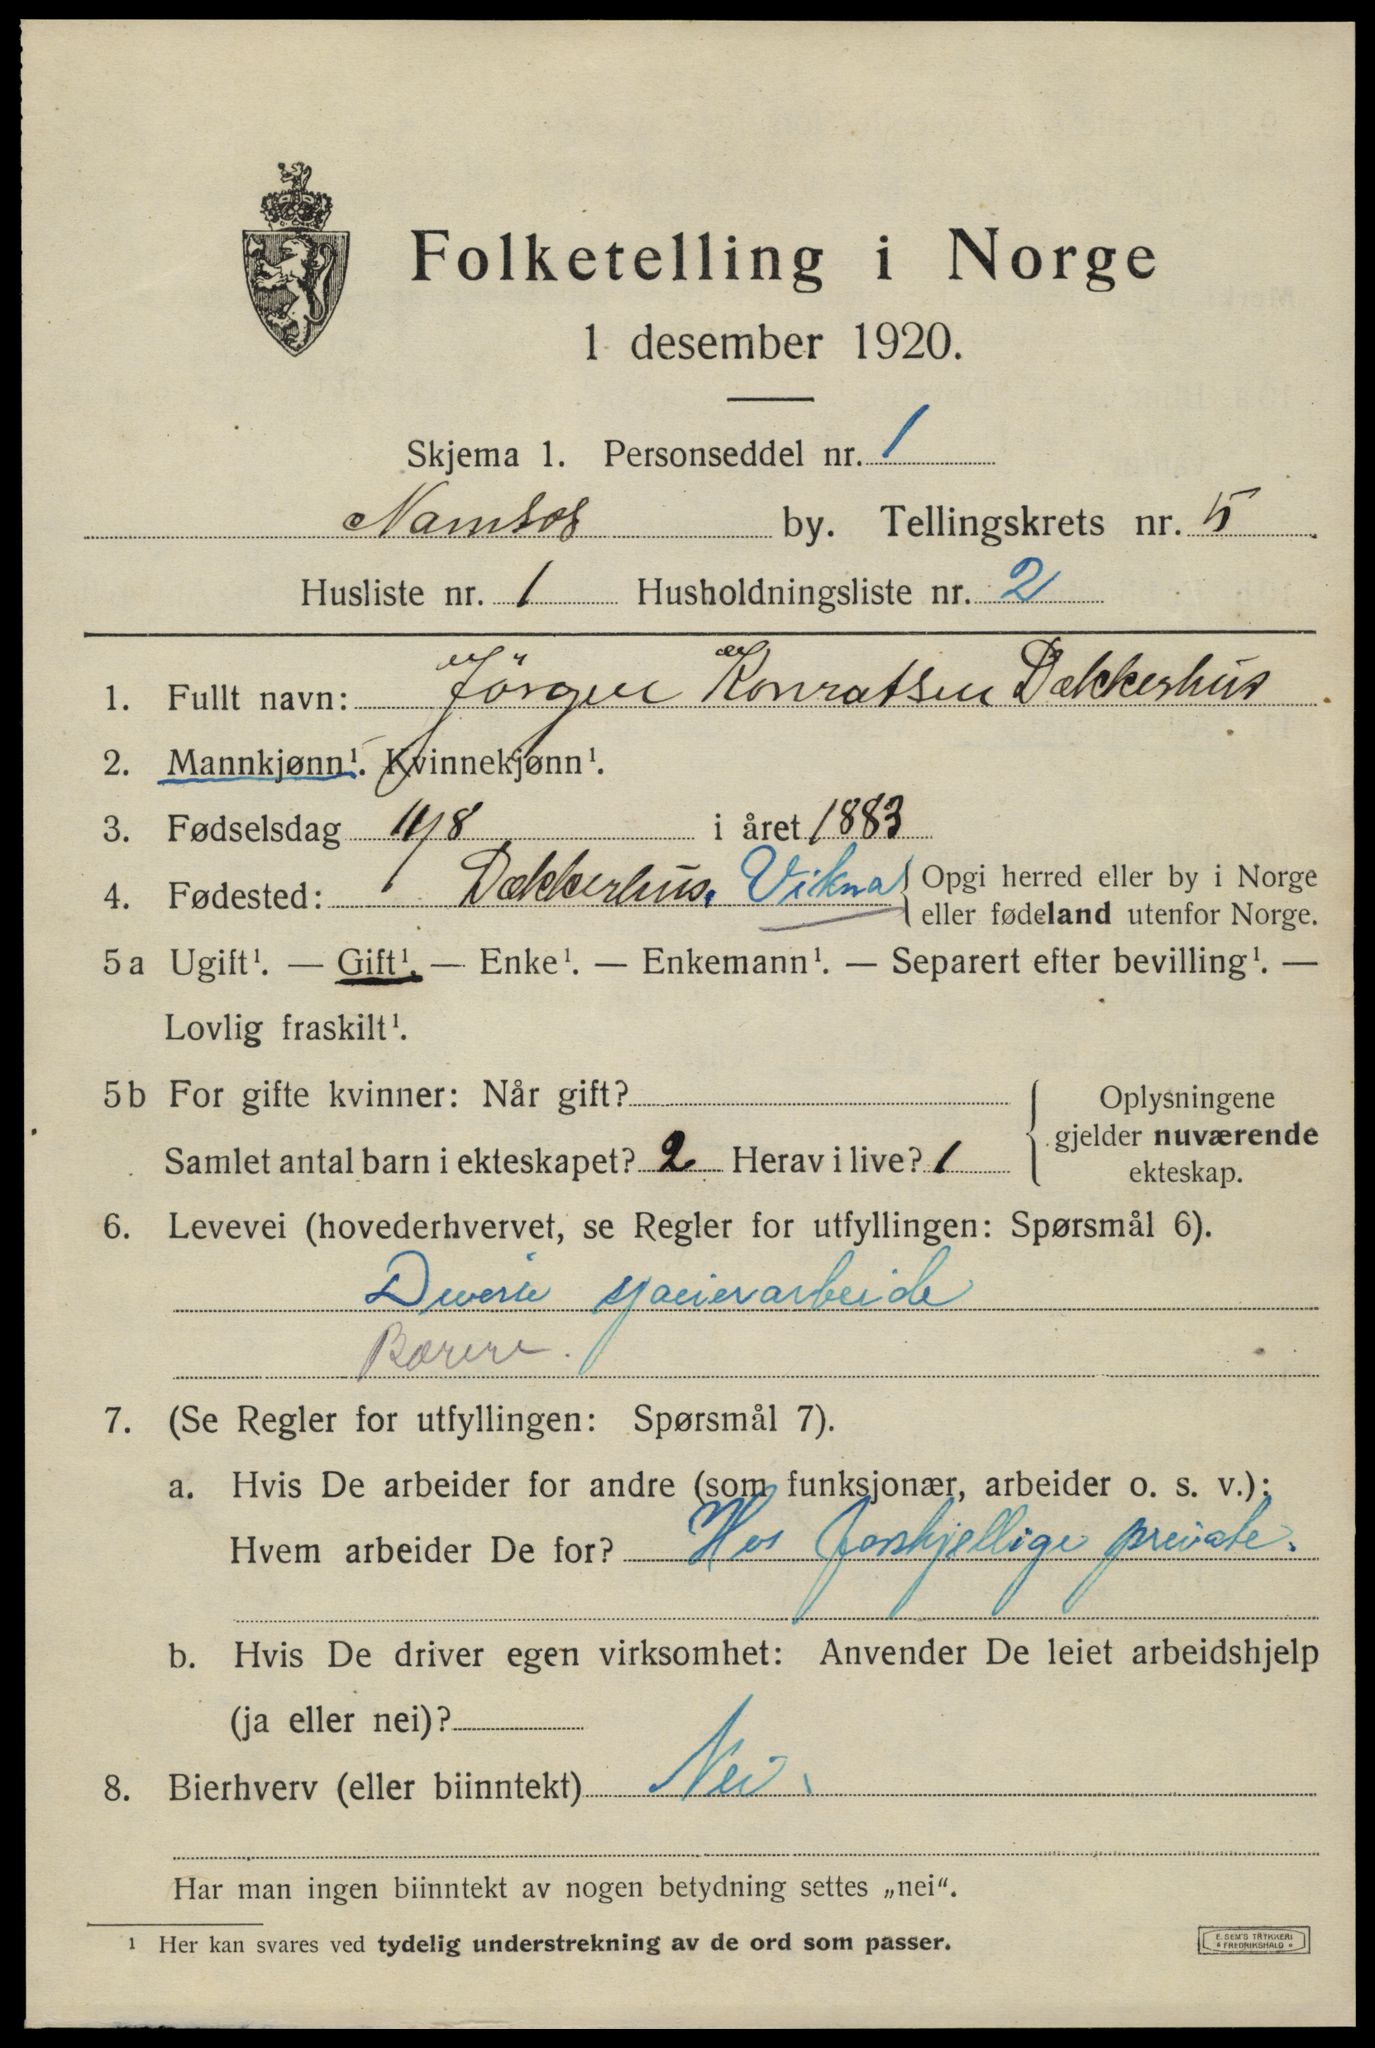 Folketelling i Norge
1 desember 1920.
Skjema 1. Personseddel nr. 1
Namsos by. Tellingskrets nr. 5
Husliste nr. 1 Husholdningsliste nr. 2
1. Fullt navn: Jörgen Konratsen Dækkerhus
2. Mannkjønn¹. Kvinnekjønn¹.
3. Fødselsdag 11/8 i året 1883
4. Fødested: Dækkerhus. Vikna { Opgi herred eller by i Norge
eller fødeland utenfor Norge.
5a Ugift¹. — Gift¹. — Enke¹. — Enkemann¹. — Separert efter bevilling¹. —
Lovlig fraskilt¹.
5b For gifte kvinner: Når gift?
Samlet antal barn i ekteskapet? 2 Herav i live? 1
Oplysningene
gjelder nuværende
ekteskap.
6. Levevei (hovederhvervet, se Regler for utfyllingen: Spørsmål 6).
Diverse sjauerarbeide
7. (Se Regler for utfyllingen: Spørsmål 7).
a. Hvis De arbeider for andre (som funksjonær, arbeider o. s. v.):
Hvem arbeider De for? Hos forskjellige private.
b. Hvis De driver egen virksomhet: Anvender De leiet arbeidshjelp
(ja eller nei)?
8. Bierhverv (eller biinntekt) Nei.
Har man ingen biinntekt av nogen betydning settes „nei“.
¹ Her kan svares ved tydelig understrekning av de ord som passer.
E. SEM'S TRYKKERI
* FREDRIKSHALD *